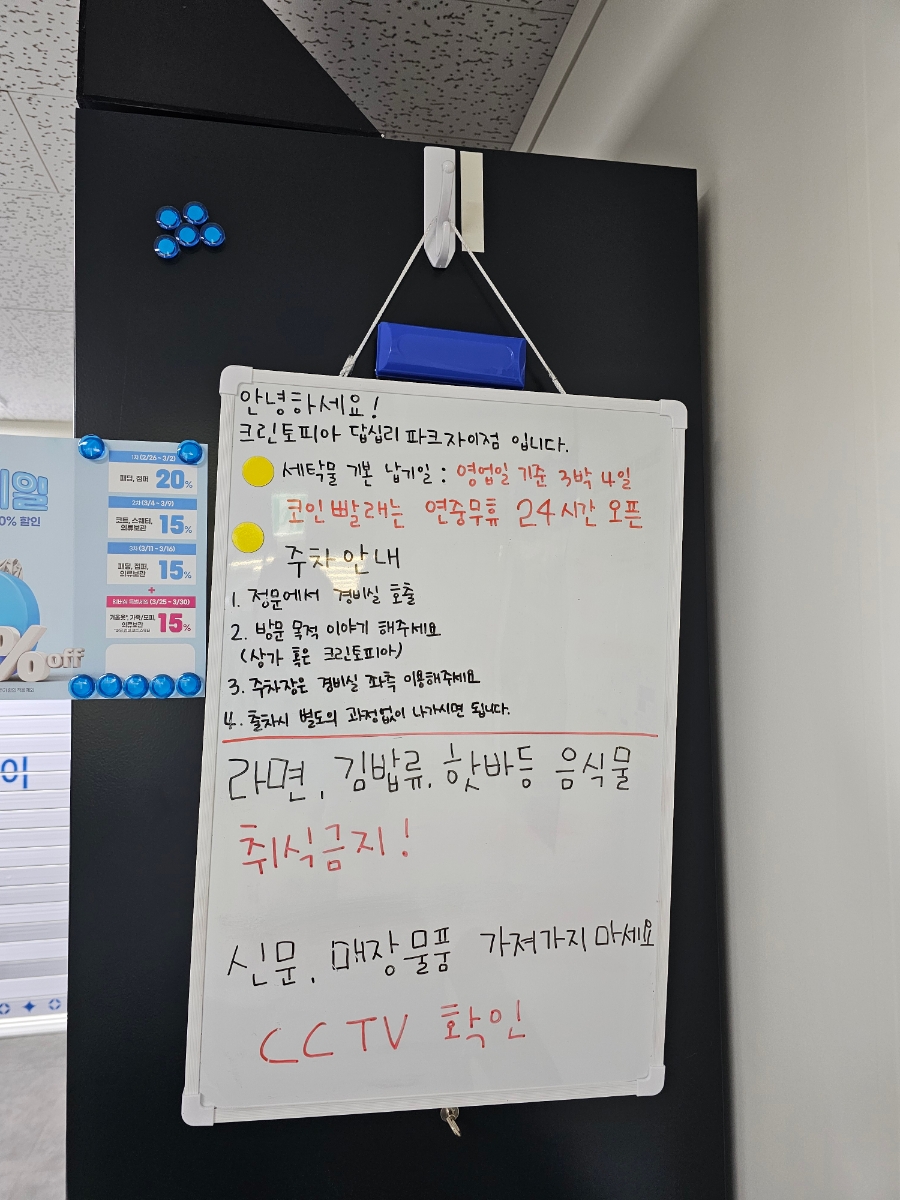 안녕하세요!
크린토피아 답십리파크자이점 입니다.
세탁물 기본 납기일 : 영업일 기준 3박 4일
코인빨래는 연중무휴 24시간 오픈
주차안내
1. 정문에서 경비실 호출
2. 방문 목적 이야기 해주세요
(상가 혹은 크린토피아)
3. 주차장은 경비실 좌측 이용해주세요
4. 출차시 별도의 과정없이 나가시면 됩니다.
라면, 김밥류, 핫바등 음식물
취식금지!
신문, 매장물품 가져가지마세요
CCTV 확인
세일
0% 할인
%off
1차 (2/26 ~ 3/2)
패딩, 점퍼 20%
2차 (3/4 ~ 3/9)
코트, 스웨터, 의류보관 15%
3차 (3/11 ~ 3/16)
패딩, 점퍼, 의류보관 15%
+
(3/25 ~ 3/30)
겨울옷, 가죽/모피, 의류보관 15%
이